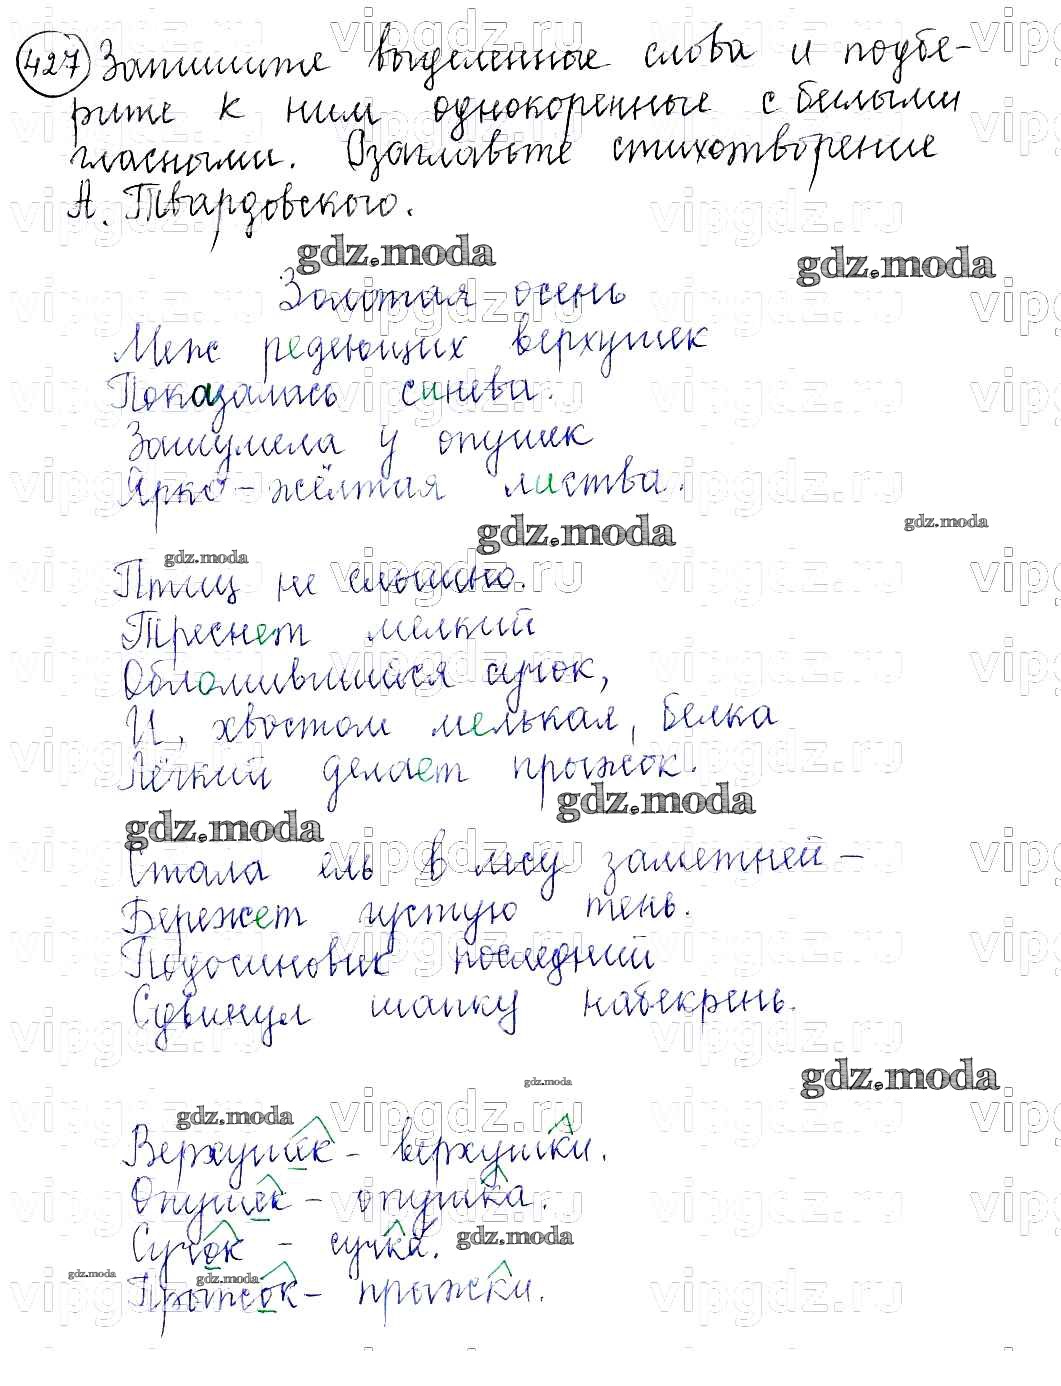 427 Запишите выделенные слова и подбе-
рите к ним однокоренные с беглыми
гласными. Озаглавьте стихотворение
А. Твардовского.
gdz.moda gdz.moda
Золотая осень
Меж редеющих верхушек
Показалась синева.
Зашумела у опушек
Ярко-жёлтая листва.
gdz.moda gdz.moda
gdz.moda
Птиц не слышно.
Треснет мелкий
Обломившийся сучок,
И, хвостом мелькая, белка
Лёгкий делает прыжок.
gdz.moda
gdz.moda
Стала ель в лесу заметней –
Бережёт густую тень.
Подосиновик последний
Сдвинул шапку набекрень.
gdz.moda gdz.moda
gdz.moda
Верхушек – верхушки.
Опушек – опушка.
Сучок – сучка. gdz.moda
gdz.moda gdz.moda
Прыжок – прыжки.
vipgdz.ru